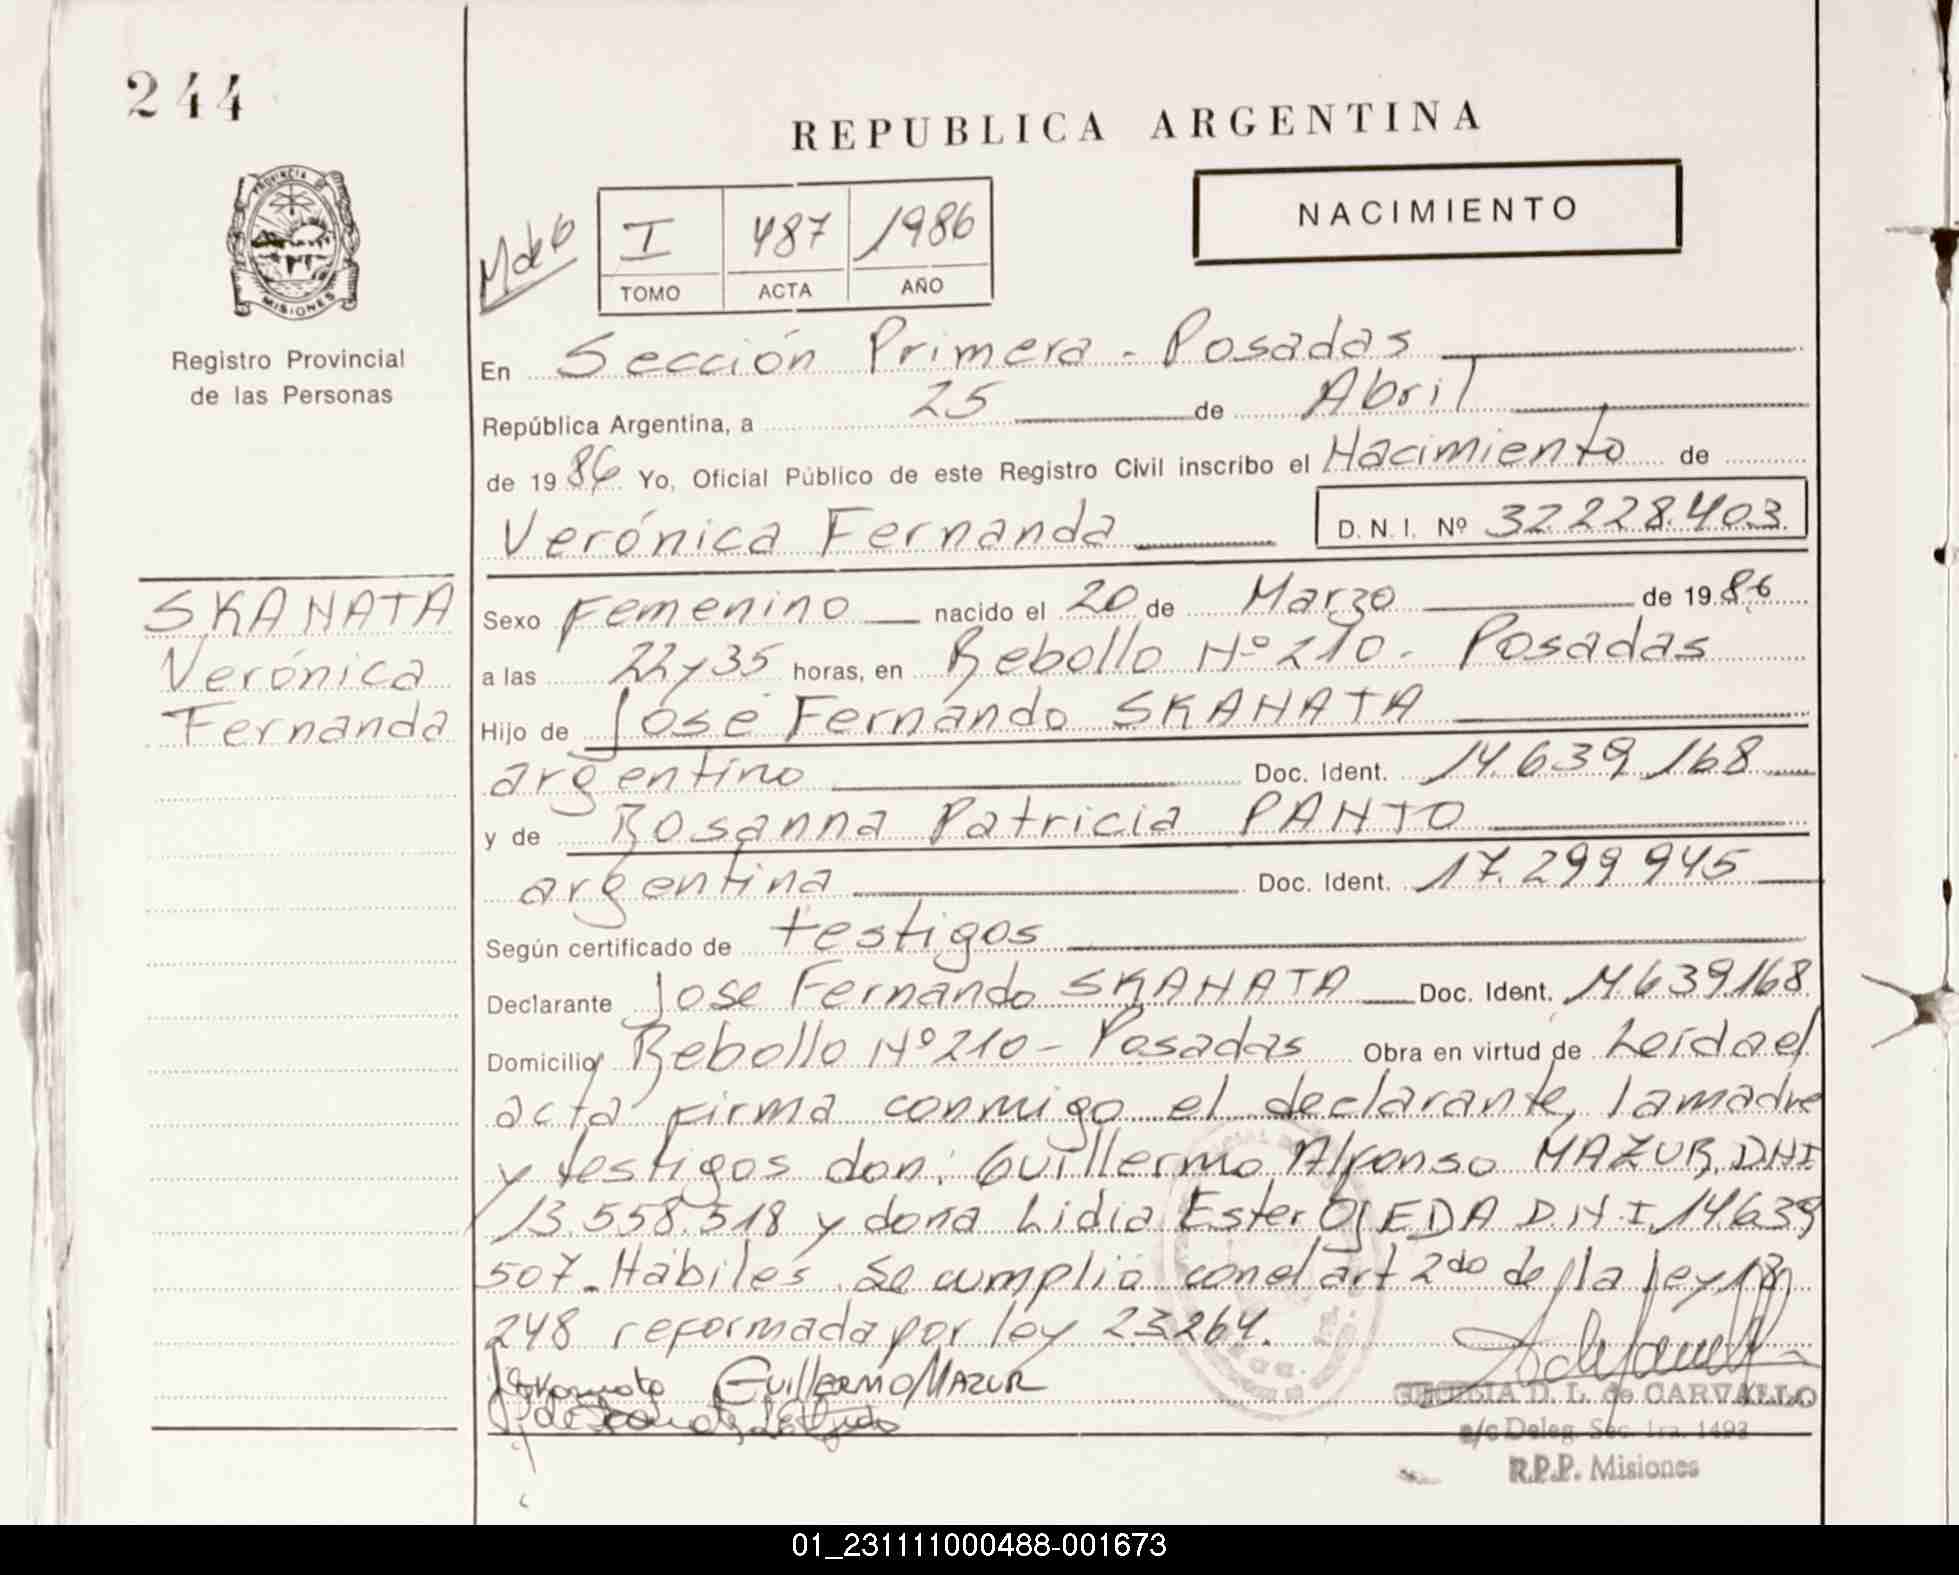 244
REPUBLICA ARGENTINA
PROVINCIA DE
MISIONES
Registro Provincial
de las Personas
M de 6
I 487 1986
TOMO ACTA AÑO
NACIMIENTO
En Sección Primera - Posadas
República Argentina, a 25 de Abril
de 1986 Yo, Oficial Público de este Registro Civil inscribo el Nacimiento de
Verónica Fernanda D.N.I. Nº 32.228.403
SKANATA
Verónica
Fernanda
Sexo Femenino nacido el 20 de Marzo de 1986
a las 22 y 35 horas, en Rebollo Nº 210 - Posadas
Hijo de José Fernando SKANATA
argentino Doc. Ident. 14.639.168
y de Rosanna Patricia PANTO
argentina Doc. Ident. 17.299.945
Según certificado de testigos
Declarante José Fernando SKANATA Doc. Ident. 14.639.168
Domicilio Rebollo Nº 210 - Posadas Obra en virtud de Leída el
acta firma conmigo el declarante, la madre
y testigos don: Guillermo Alfonso MAZUR, DNI
13.558.518 y doña Lidia Ester OJEDA D.N.I. 14.639
507 - Hábiles. Se cumplió con el art 2do de la ley 18
248 reformada por ley 23264.
GUILLERMO MAZUR
D. L. de CARVALLO
a/c Deleg. Sec. 1ra. 1493
R.P.P. Misiones
01_231111000488-001673